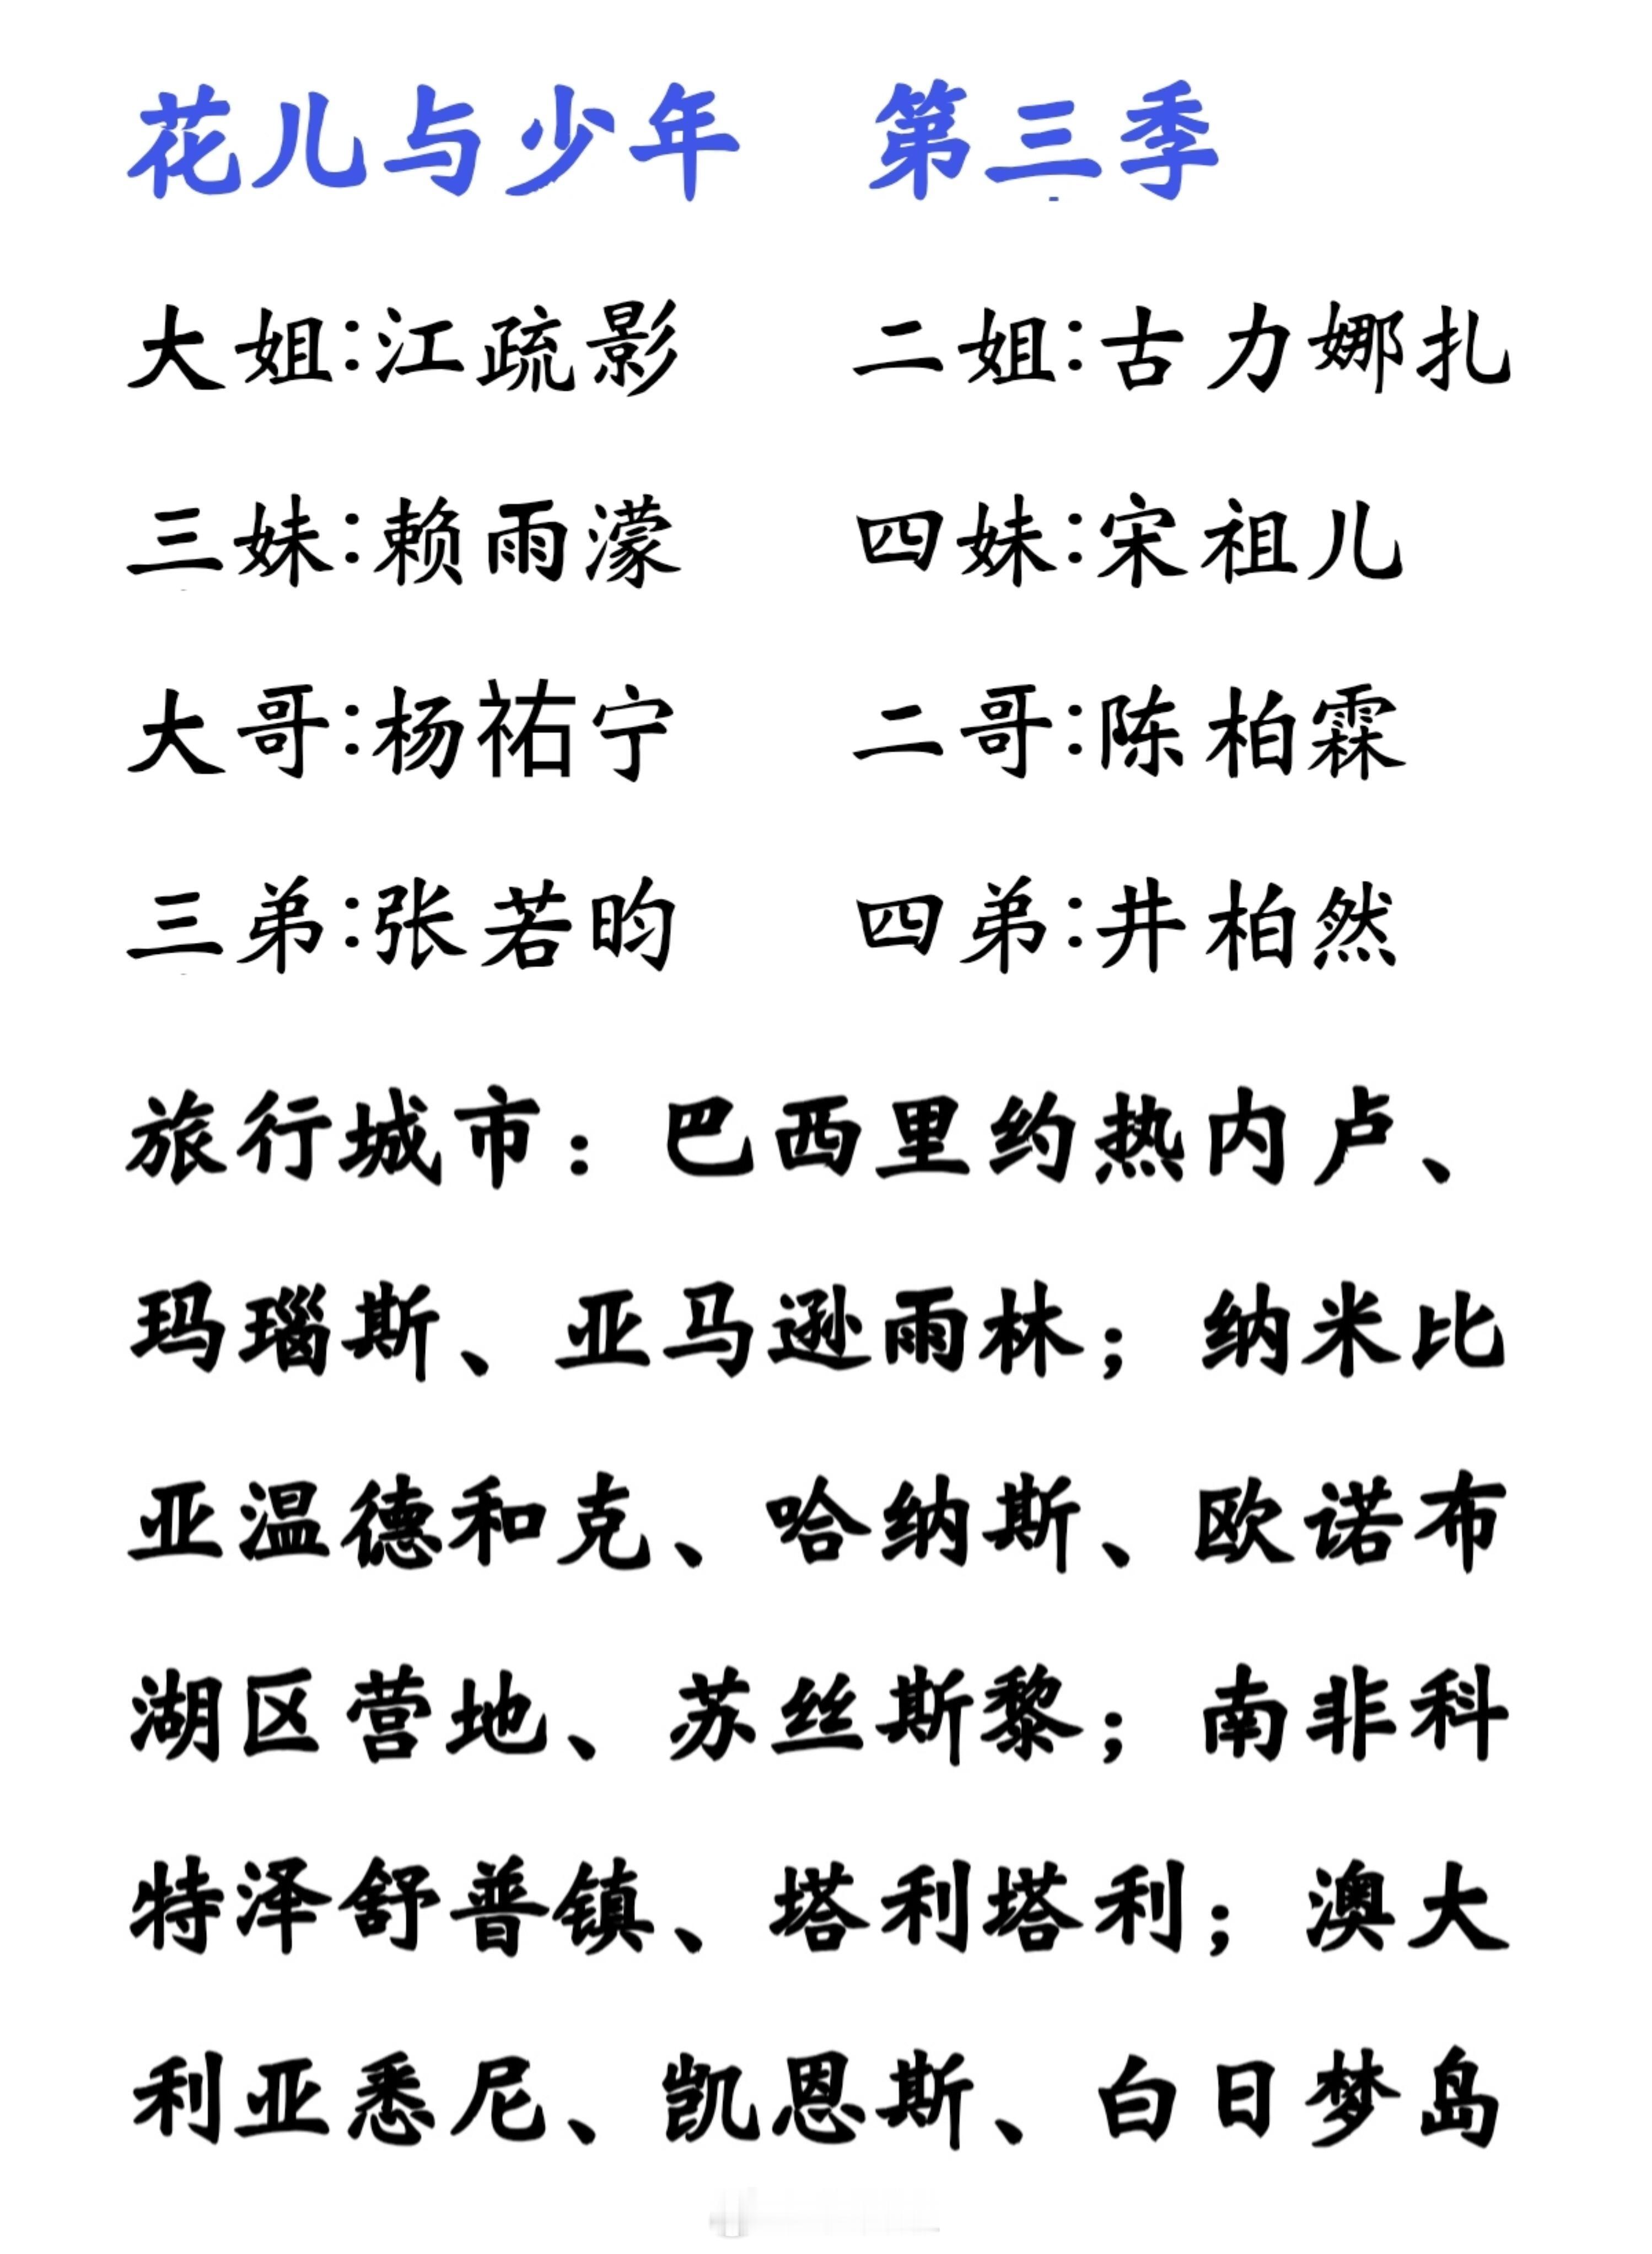 花儿与少年 第三季
大姐:江疏影 二姐:古力娜扎
三妹:赖雨濛 四妹:宋祖儿
大哥:杨祐宁 二哥:陈柏霖
三弟:张若昀 四弟:井柏然
旅行城市：巴西里约热内卢、
玛瑙斯、亚马逊雨林；纳米比
亚温德和克、哈纳斯、欧诺布
湖区营地、苏丝斯黎；南非科
特泽舒普镇、塔利塔利；澳大
利亚悉尼、凯恩斯、白日梦岛